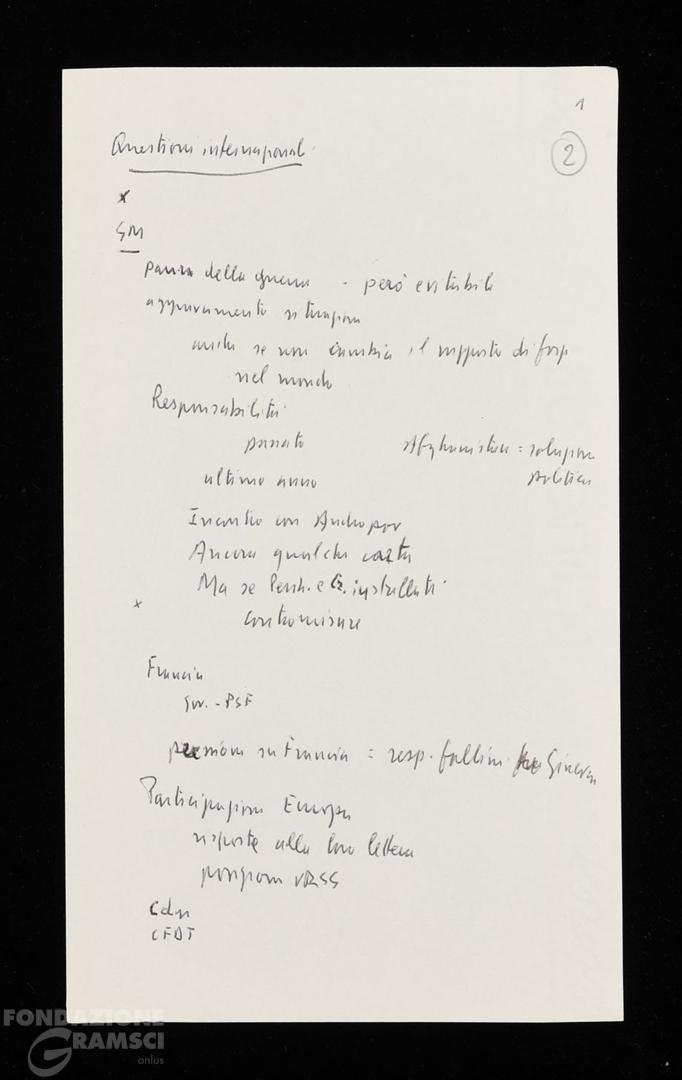 1
2
Questioni internazionali
x
GM
paura della guerra - però evitabile
aggravamento situazione
anche se non cambia il rapporto di forze
nel mondo
Responsabilità
passato Afghanistan = soluzione
ultimo anno politica
Incontro con Andropov
Ancora qualche carta
Ma se Persh. e Cr. installati
x
contromisure
Francia
Gov. - PSF
pressione su Francia = resp. fallim. Ginevra
Partecipazione Europa
risposte alla loro lettera
posizioni URSS
CFDT
FONDAZIONE
GRAMSCI
onlus